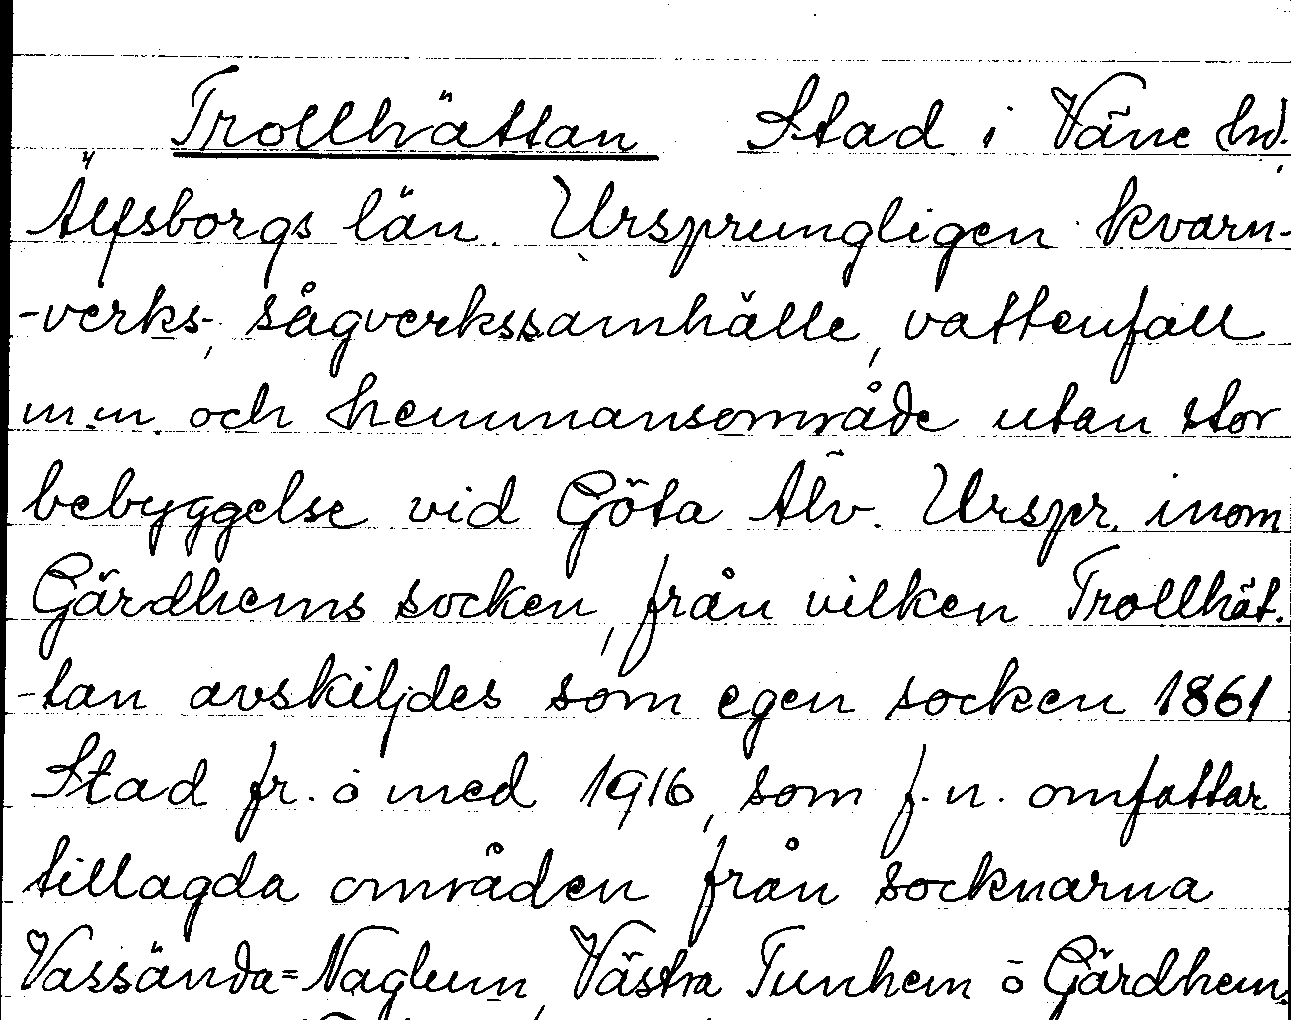 Trollhättan Stad i Väne hd.
Älfsborgs län. Ursprungligen kvarn-
-verks-, sågverkssamhälle, vattenfall
m.m. och hemmansområde utan stor
bebyggelse vid Göta Älv. Urspr. inom
Gärdhems socken, från vilken Trollhät-
-tan avskiljdes som egen socken 1861
Stad fr. o med 1916, som f.n. omfattar
tillagda områden från socknarna
Vassända=Naglum, Västra Tunhem o Gärdhem.